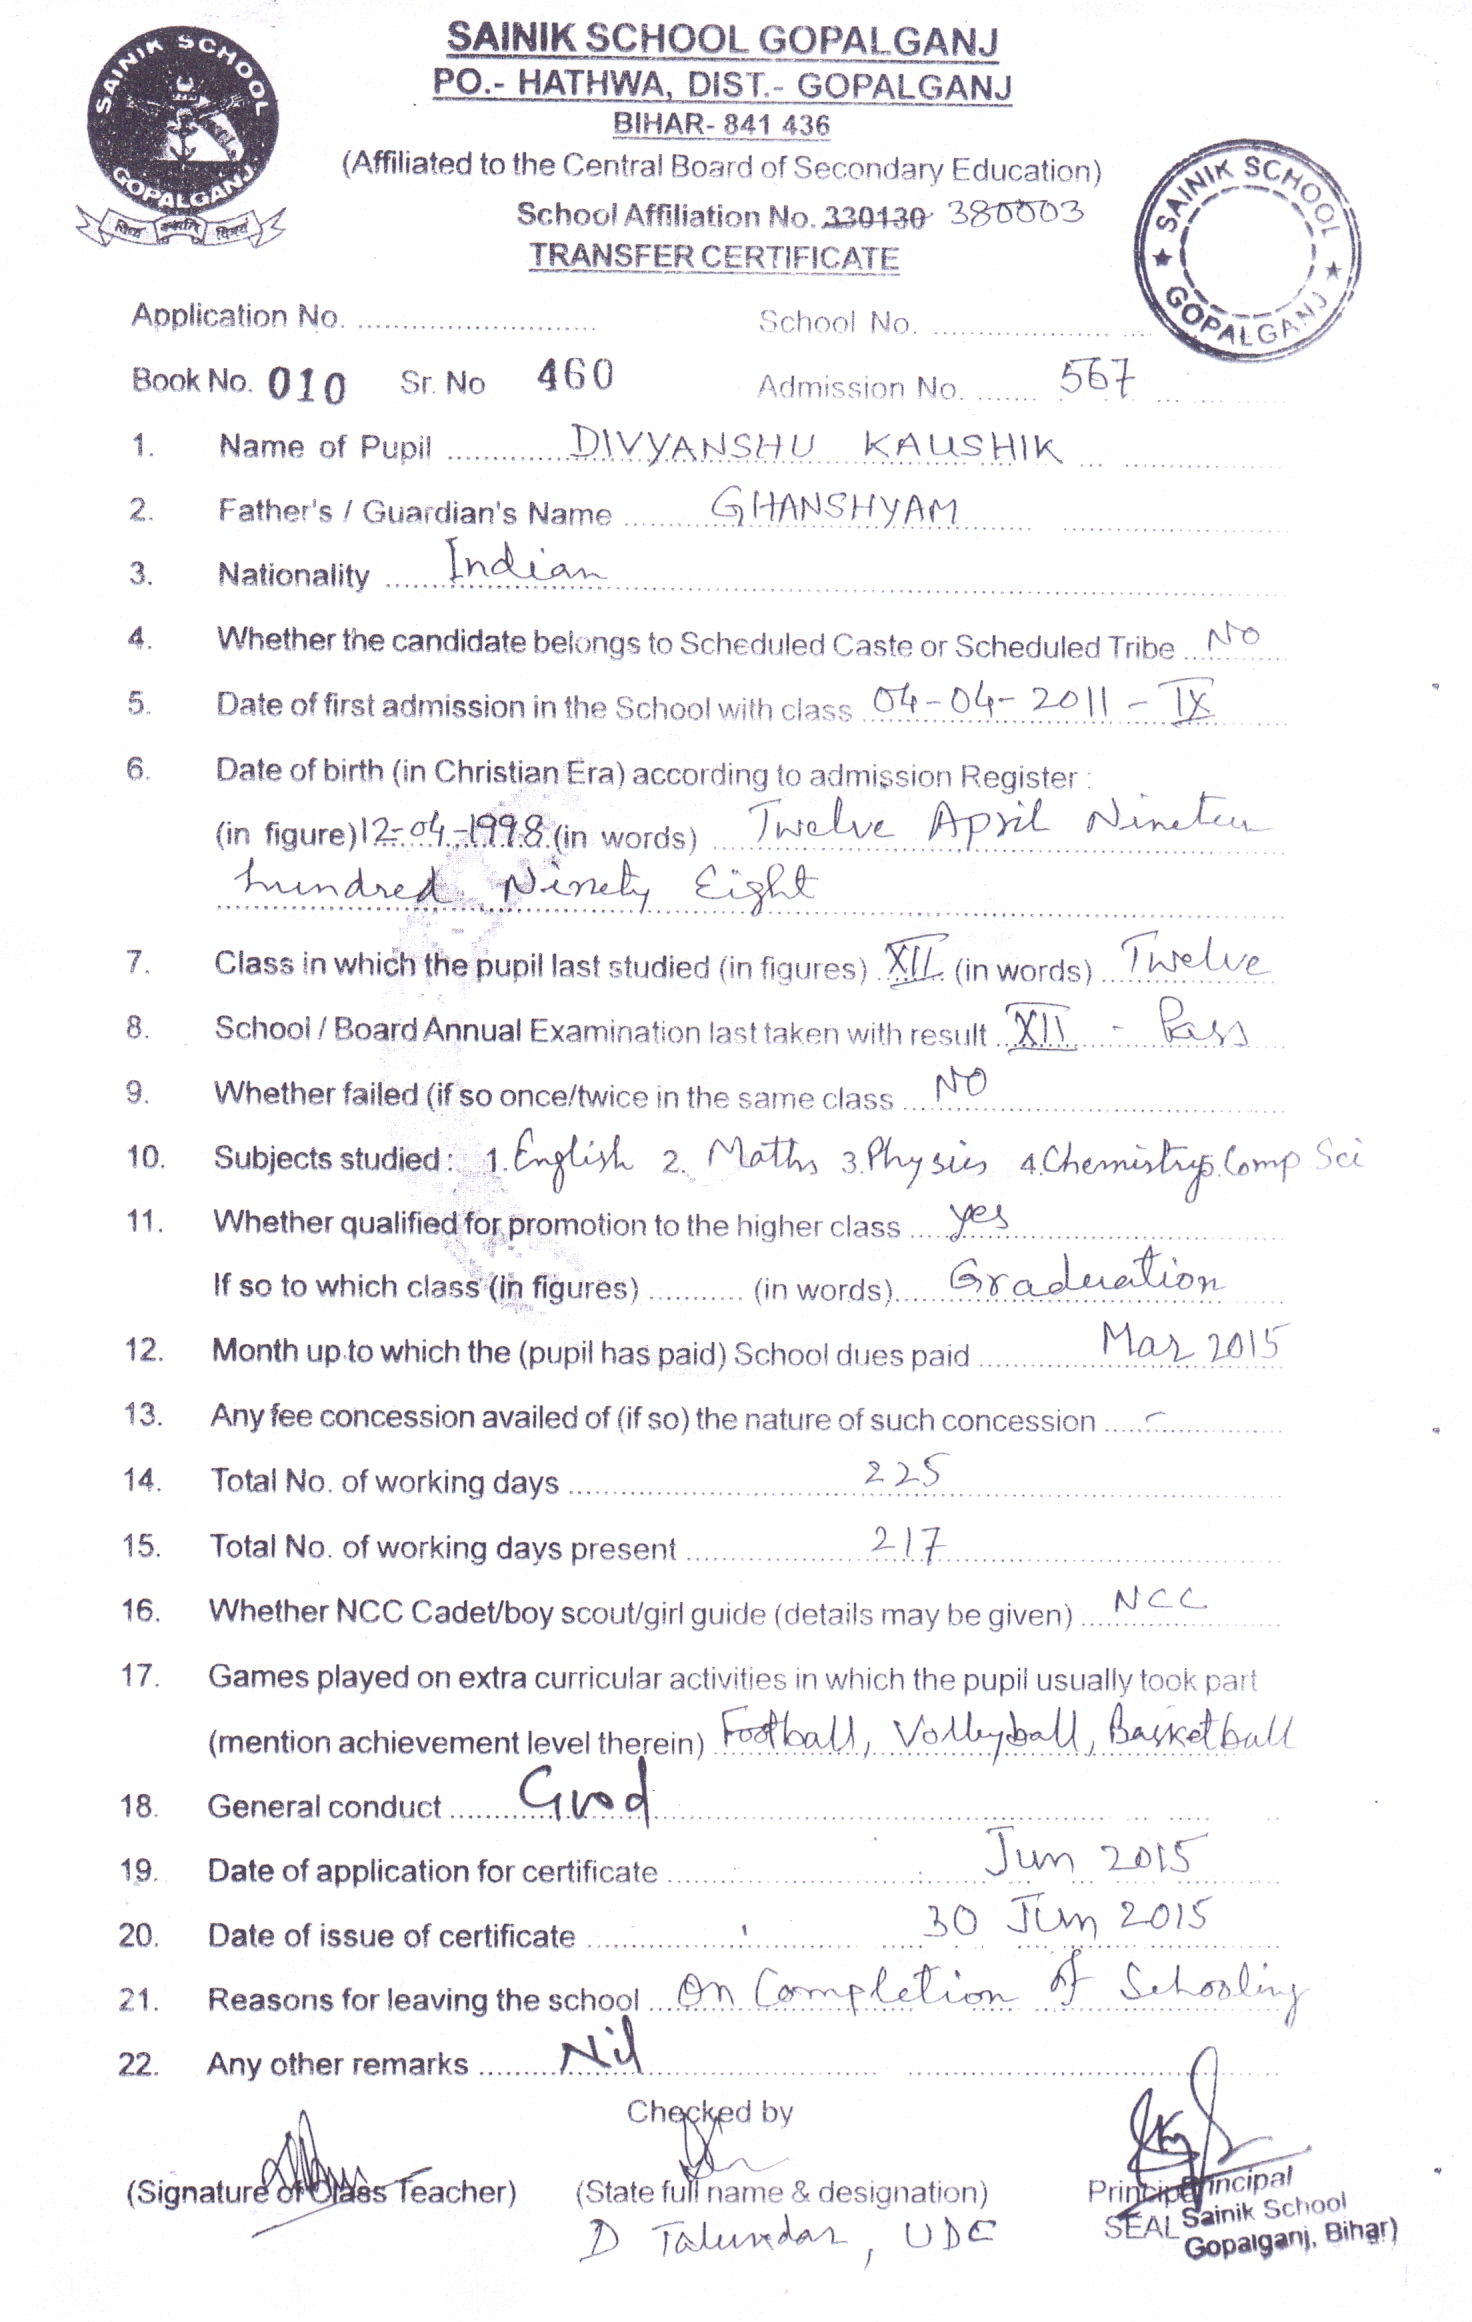 SAINIK SCHOOL GOPALGANJ
SAINIK SCHOOL GOPALGANJ
PO.- HATHWA, DIST.- GOPALGANJ
BIHAR- 841 436
(Affiliated to the Central Board of Secondary Education)
School Affiliation No. 330130 380003
TRANSFER CERTIFICATE
SAINIK SCHOOL ★ GOPALGANJ ★
Application No. School No.
Book No. 010 Sr. No 460 Admission No. 567
1. Name of Pupil DIVYANSHU KAUSHIK
2. Father's / Guardian's Name GHANSHYAM
3. Nationality Indian
4. Whether the candidate belongs to Scheduled Caste or Scheduled Tribe NO
5. Date of first admission in the School with class 04-04-2011 - IX
6. Date of birth (in Christian Era) according to admission Register :
(in figure) 12-04-1998 (in words) Twelve April Nineteen
hundred Ninety Eight
7. Class in which the pupil last studied (in figures) XII (in words) Twelve
8. School / Board Annual Examination last taken with result XII - Pass
9. Whether failed (if so once/twice in the same class NO
10. Subjects studied : 1. English 2. Maths 3. Physics 4. Chemistry 5. Comp Sci
11. Whether qualified for promotion to the higher class yes
If so to which class (in figures) (in words) Graduation
12. Month up to which the (pupil has paid) School dues paid Mar 2015
13. Any fee concession availed of (if so) the nature of such concession -
14. Total No. of working days 225
15. Total No. of working days present 217
16. Whether NCC Cadet/boy scout/girl guide (details may be given) NCC
17. Games played on extra curricular activities in which the pupil usually took part
(mention achievement level therein) Football, Volleyball, Basketball
18. General conduct Good
19. Date of application for certificate Jun 2015
20. Date of issue of certificate 30 Jun 2015
21. Reasons for leaving the school On Completion of Schooling
22. Any other remarks Nil
Checked by
(Signature of Class Teacher) (State full name & designation) Principal
D Talukdar, UDC SEAL
Principal
Sainik School
Gopalganj, Bihar)